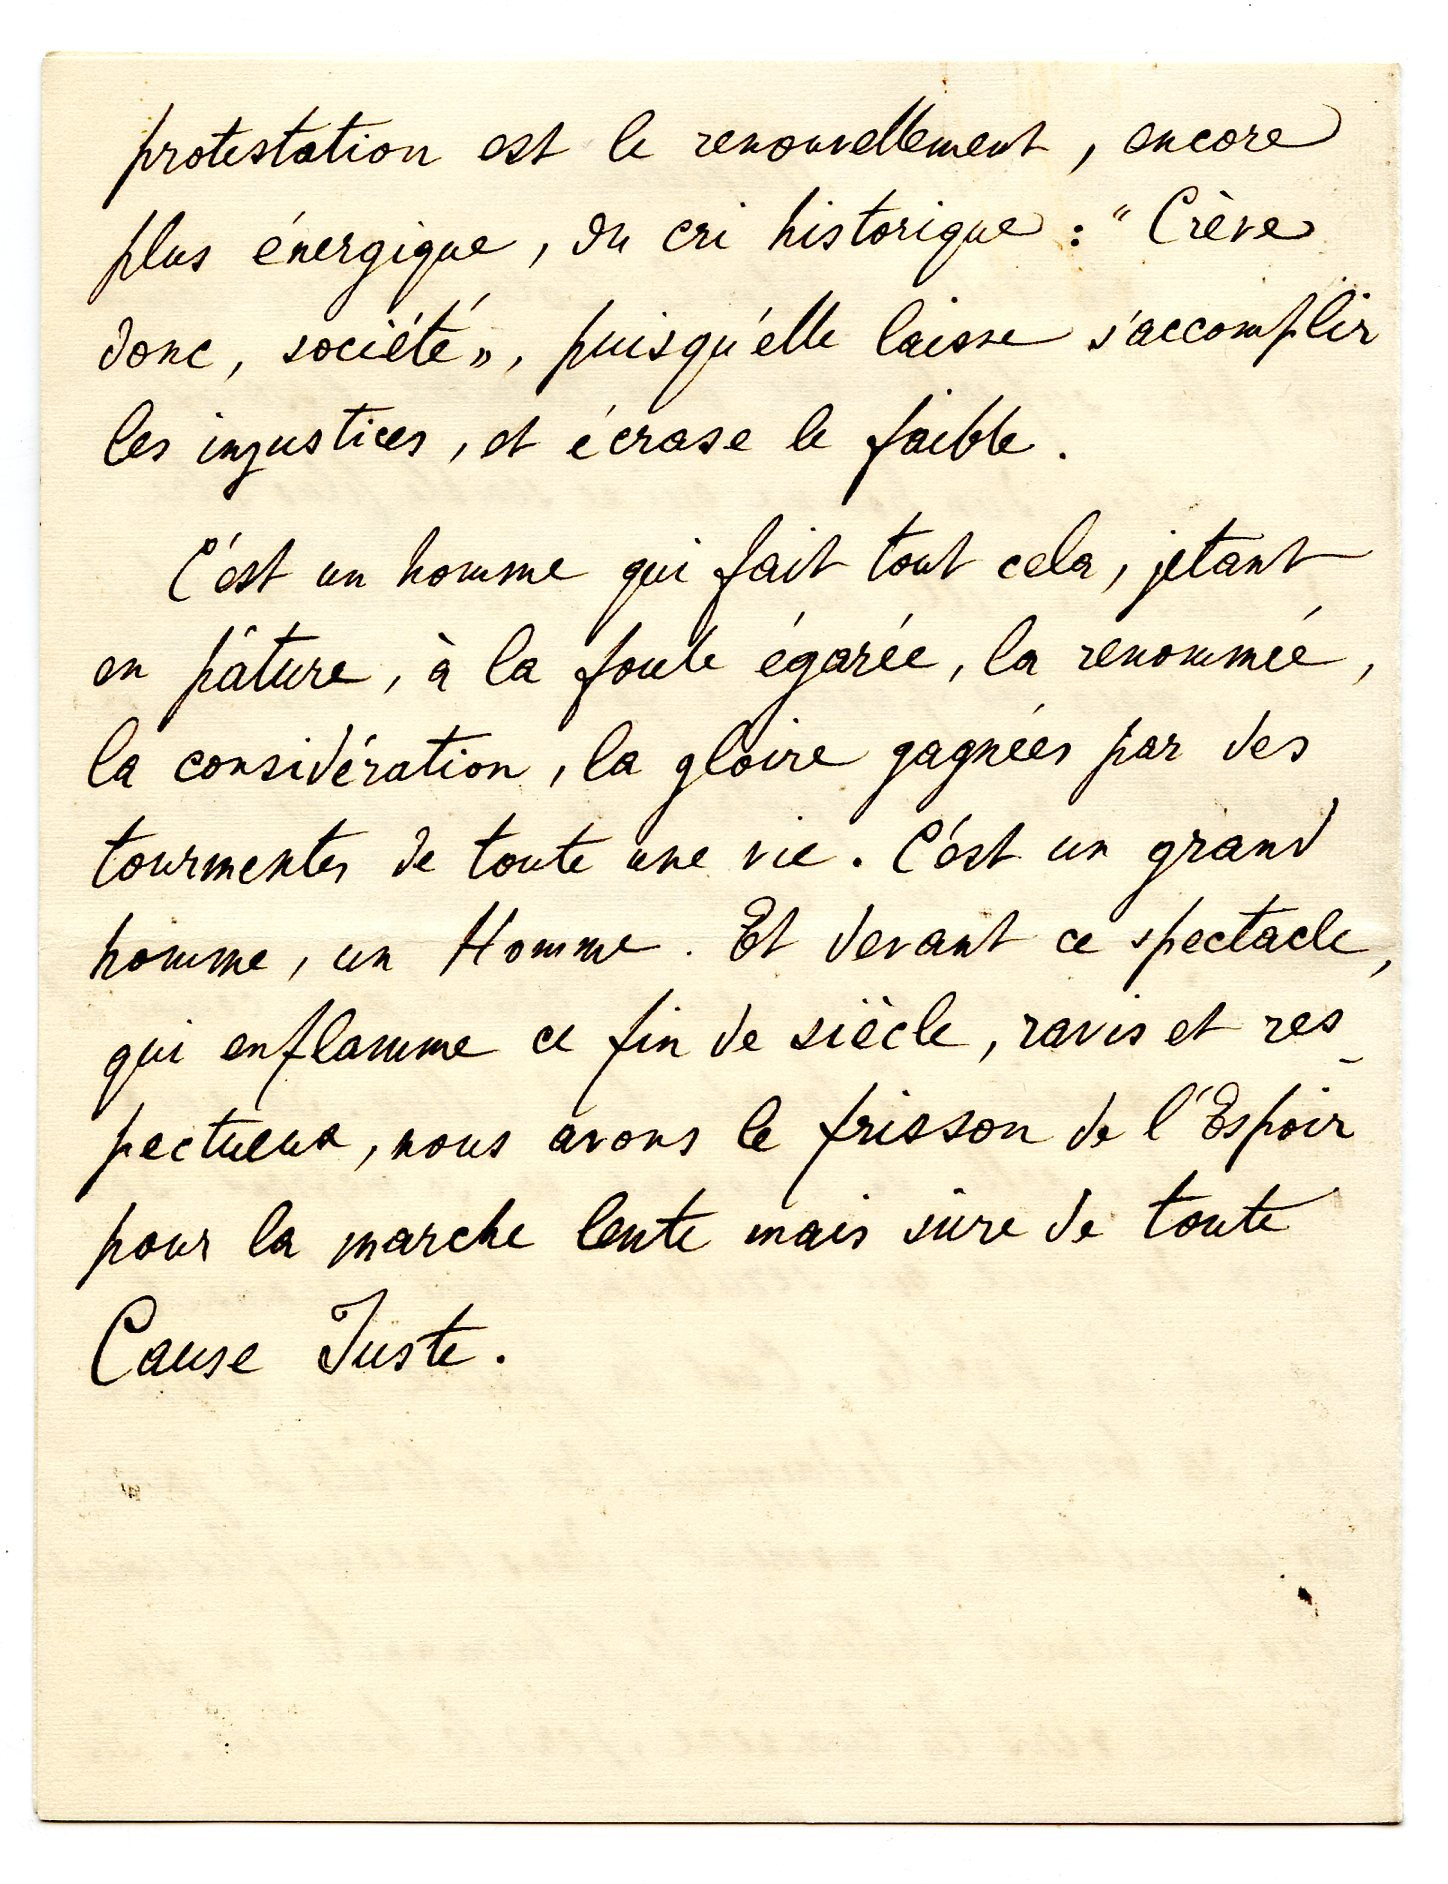 protestation est le renouvellement, encore
plus énergique, du cri historique : "Crève
donc, société», puisqu'elle laisse s'accomplir
les injustices, et écrase le faible.
C'est un homme qui fait tout cela, jetant
en pâture, à la foule égarée, la renommée,
la considération, la gloire gagnées par des
tourmentes de toute une vie. C'est un grand
homme, un Homme. Et devant ce spectacle,
qui enflamme ce fin de siècle, ravis et res-
pectueux, nous avons le frisson de l'Espoir
pour la marche lente mais sûre de toute
Cause Juste.